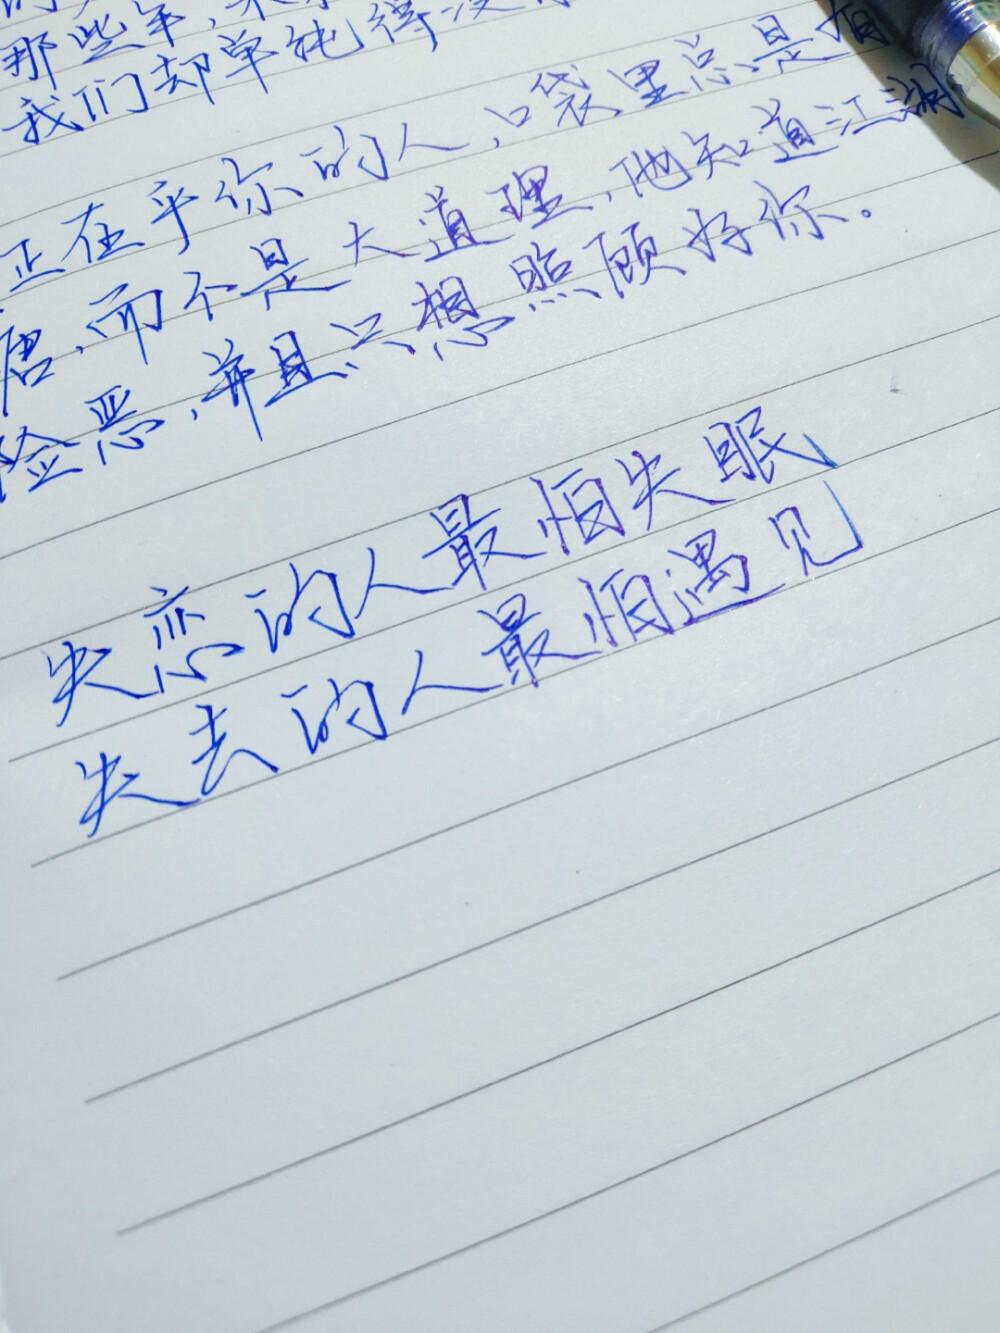 那些年,
我们却单纯得没
正在乎你的人,口袋里总是
唐,而不是大道理,他知道江湖
险恶,并且只想照顾好你。
失恋的人最怕失眠
失去的人最怕遇见